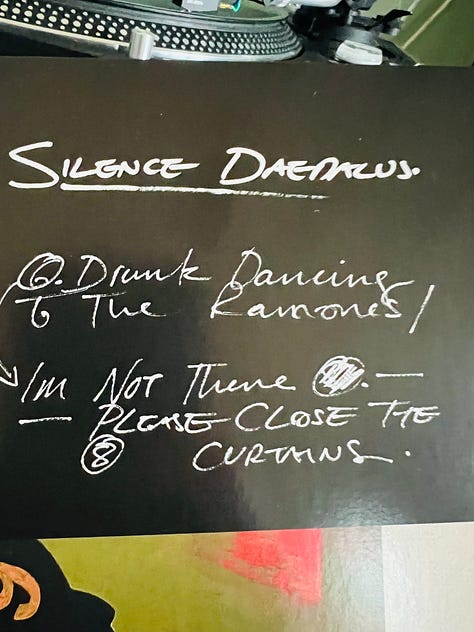 SILENCE DAEDALUS.
⑥. Drunk Dancing
To The Ramones/
I'm Not There . —
— PLEASE CLOSE THE
⑧ CURTAINS.